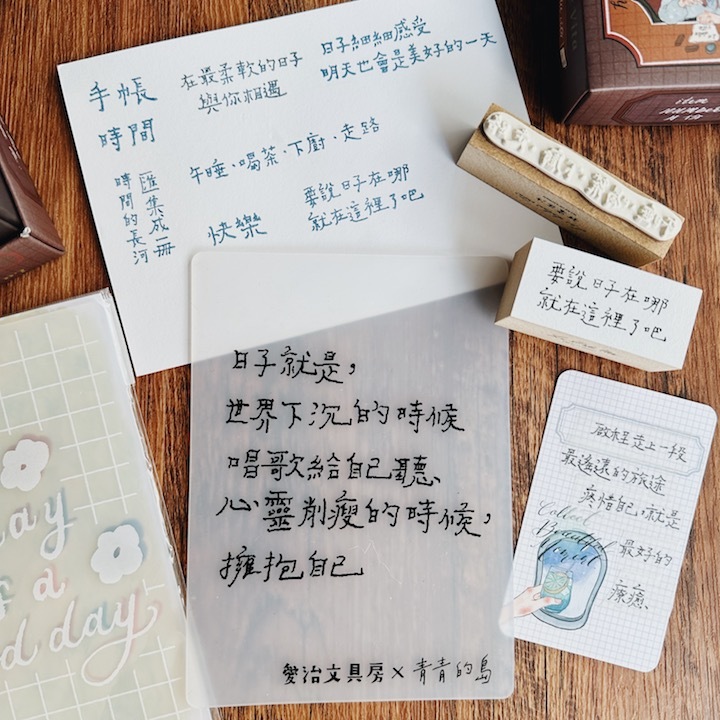 手帳
時間
在最柔軟的日子
與你相遇
日子細細感受
明天也會是美好的一天
午睡、喝茶、下廚、走路
時間的長河
匯集成一冊
快樂
要說日子在哪
就在這裡了吧
要說日子在哪
就在這裡了吧
日子就是，
世界下沉的時候
唱歌給自己聽、
心靈削瘦的時候，
擁抱自己
愛治文具房×青青的島
啟程走上一段
最遙遠的旅途
疼惜自己，就是
最好的
療癒
Collect
Beautiful
Moment
ay
s a
d day